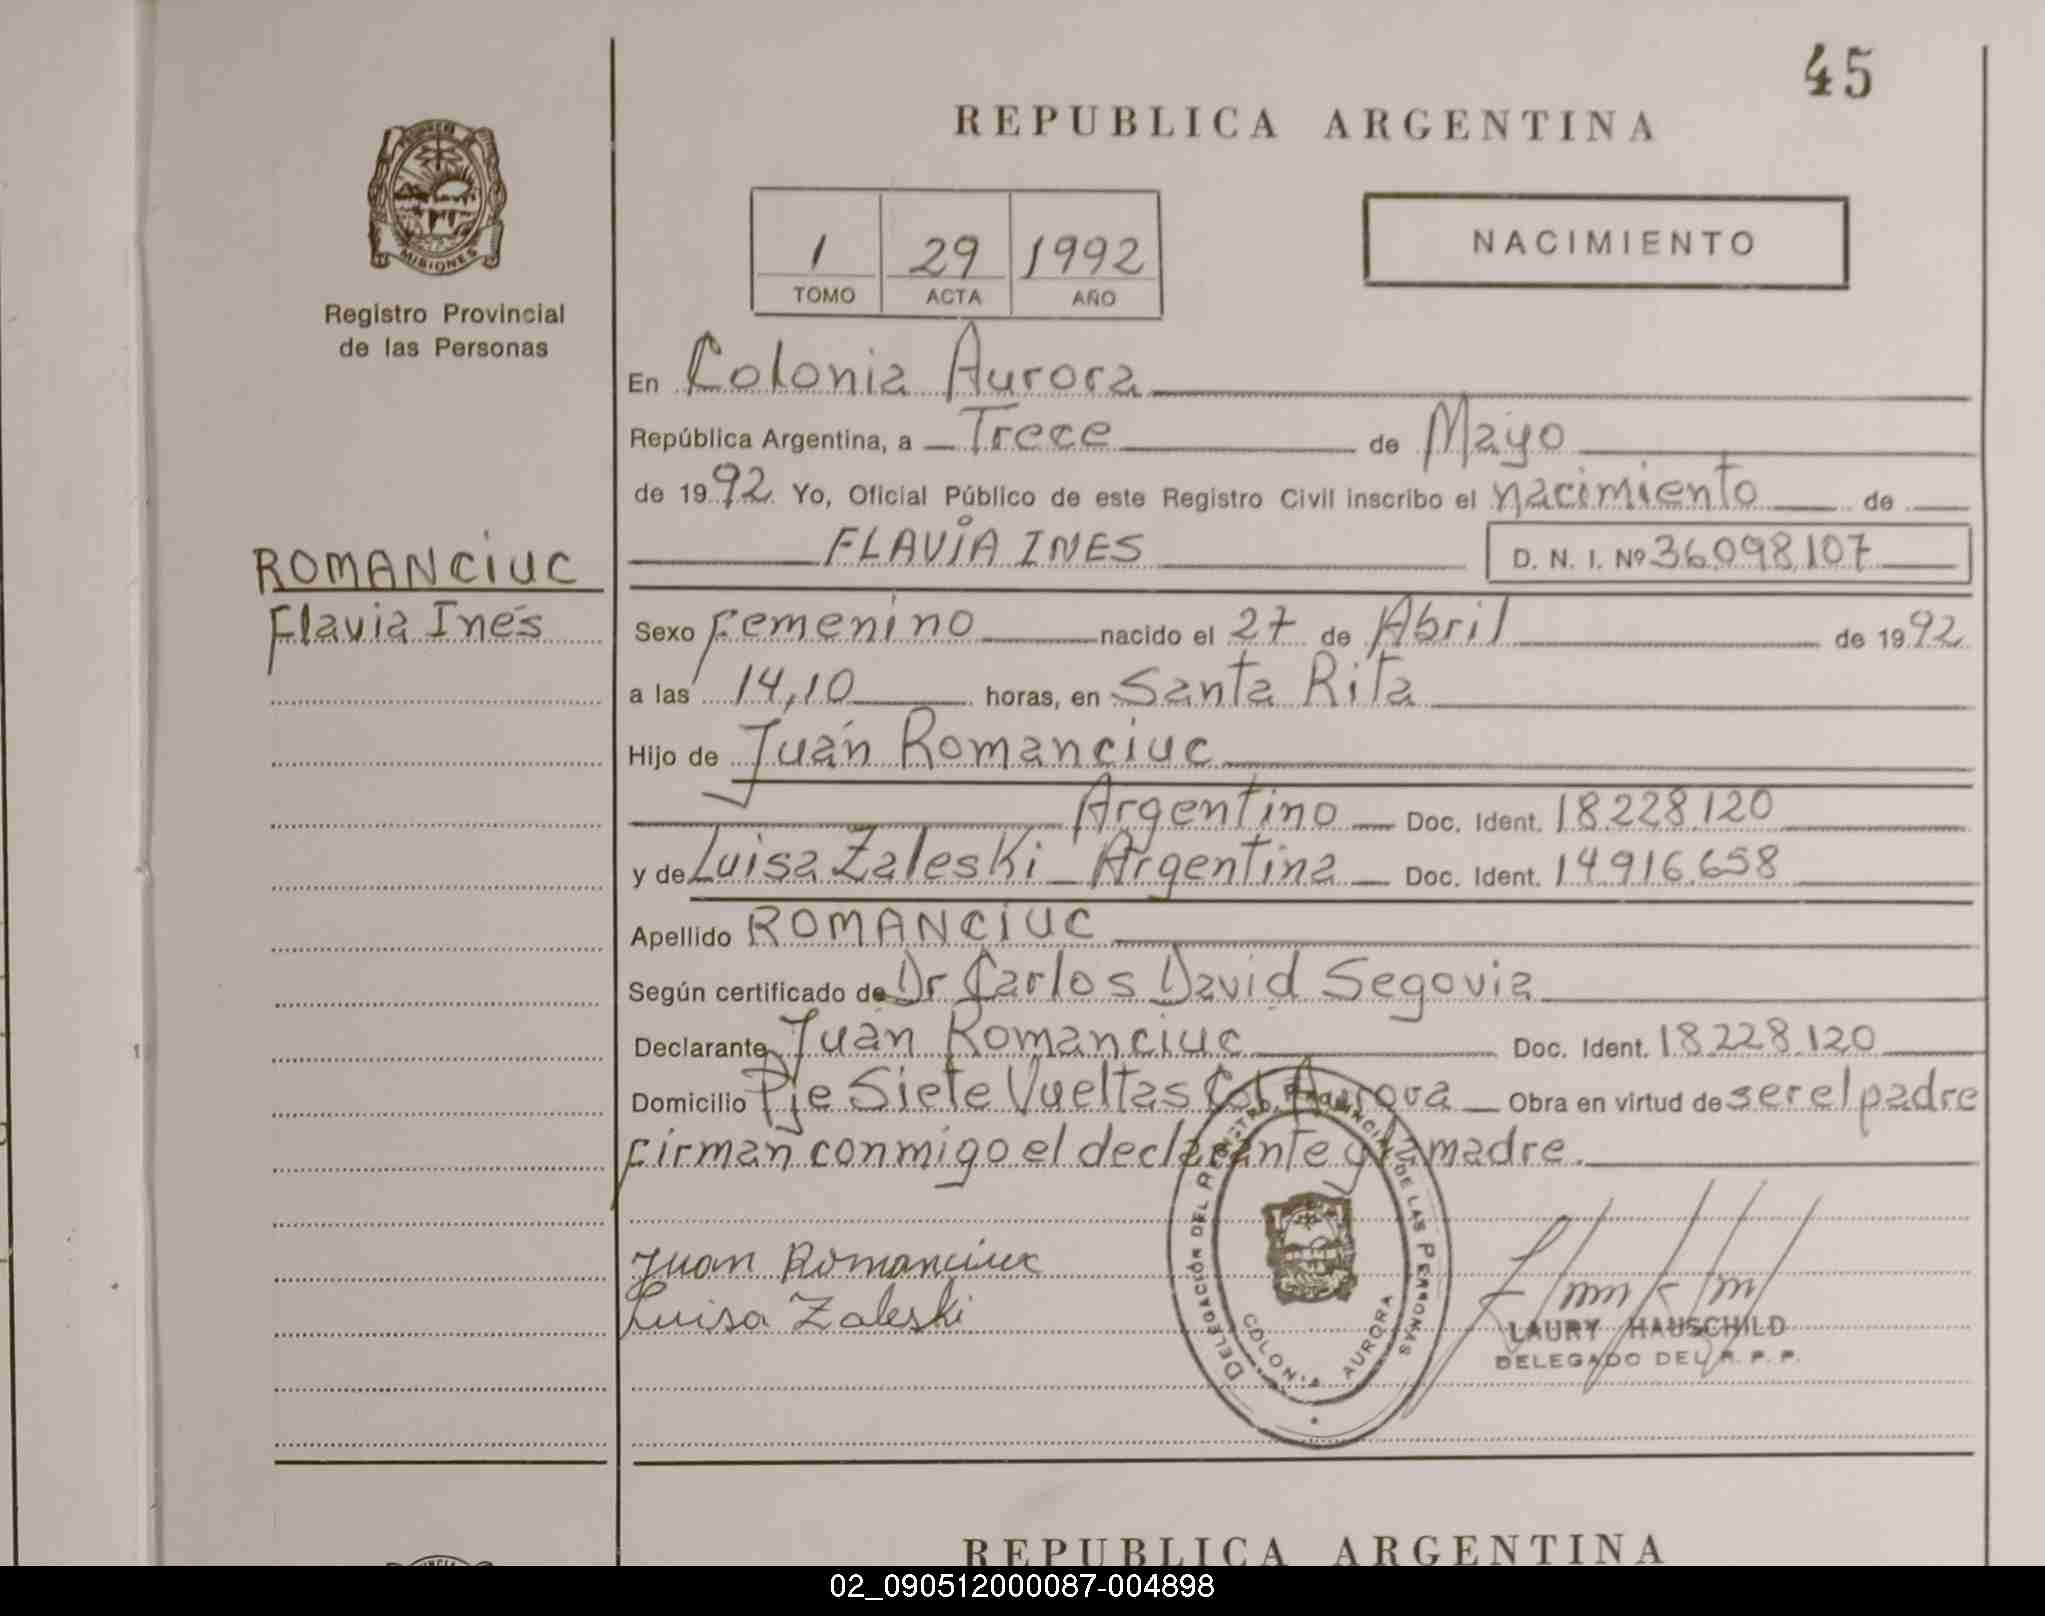 45
REPUBLICA ARGENTINA
MISIONES
Registro Provincial
de las Personas
1 29 1992
TOMO ACTA AÑO
NACIMIENTO
En Colonia Aurora
República Argentina, a Trece de Mayo
de 1992. Yo, Oficial Público de este Registro Civil inscribo el nacimiento de
FLAVIA INES D. N. I. Nº 36.098.107
ROMANCIUC
Flavia Inés
Sexo Femenino nacido el 27 de Abril de 1992
a las 14,10 horas, en Santa Rita
Hijo de Juán Romanciuc
Argentino Doc. Ident. 18.228.120
y de Luisa Zaleski Argentina Doc. Ident. 14.916.658
Apellido ROMANCIUC
Según certificado de Dr Carlos David Segovia
Declarante Juan Romanciuc Doc. Ident. 18.228.120
Domicilio Pje Siete Vueltas Col Aurora Obra en virtud de ser el padre
firman conmigo el declarante y la madre.
Juan Romanciuc
Luisa Zaleski
DELEGACIÓN DEL REGISTRO PROVINCIAL DE LAS PERSONAS
COLONIA AURORA
LAURY HAUSCHILD
DELEGADO DEL R. P. P.
REPUBLICA ARGENTINA
02_090512000087-004898